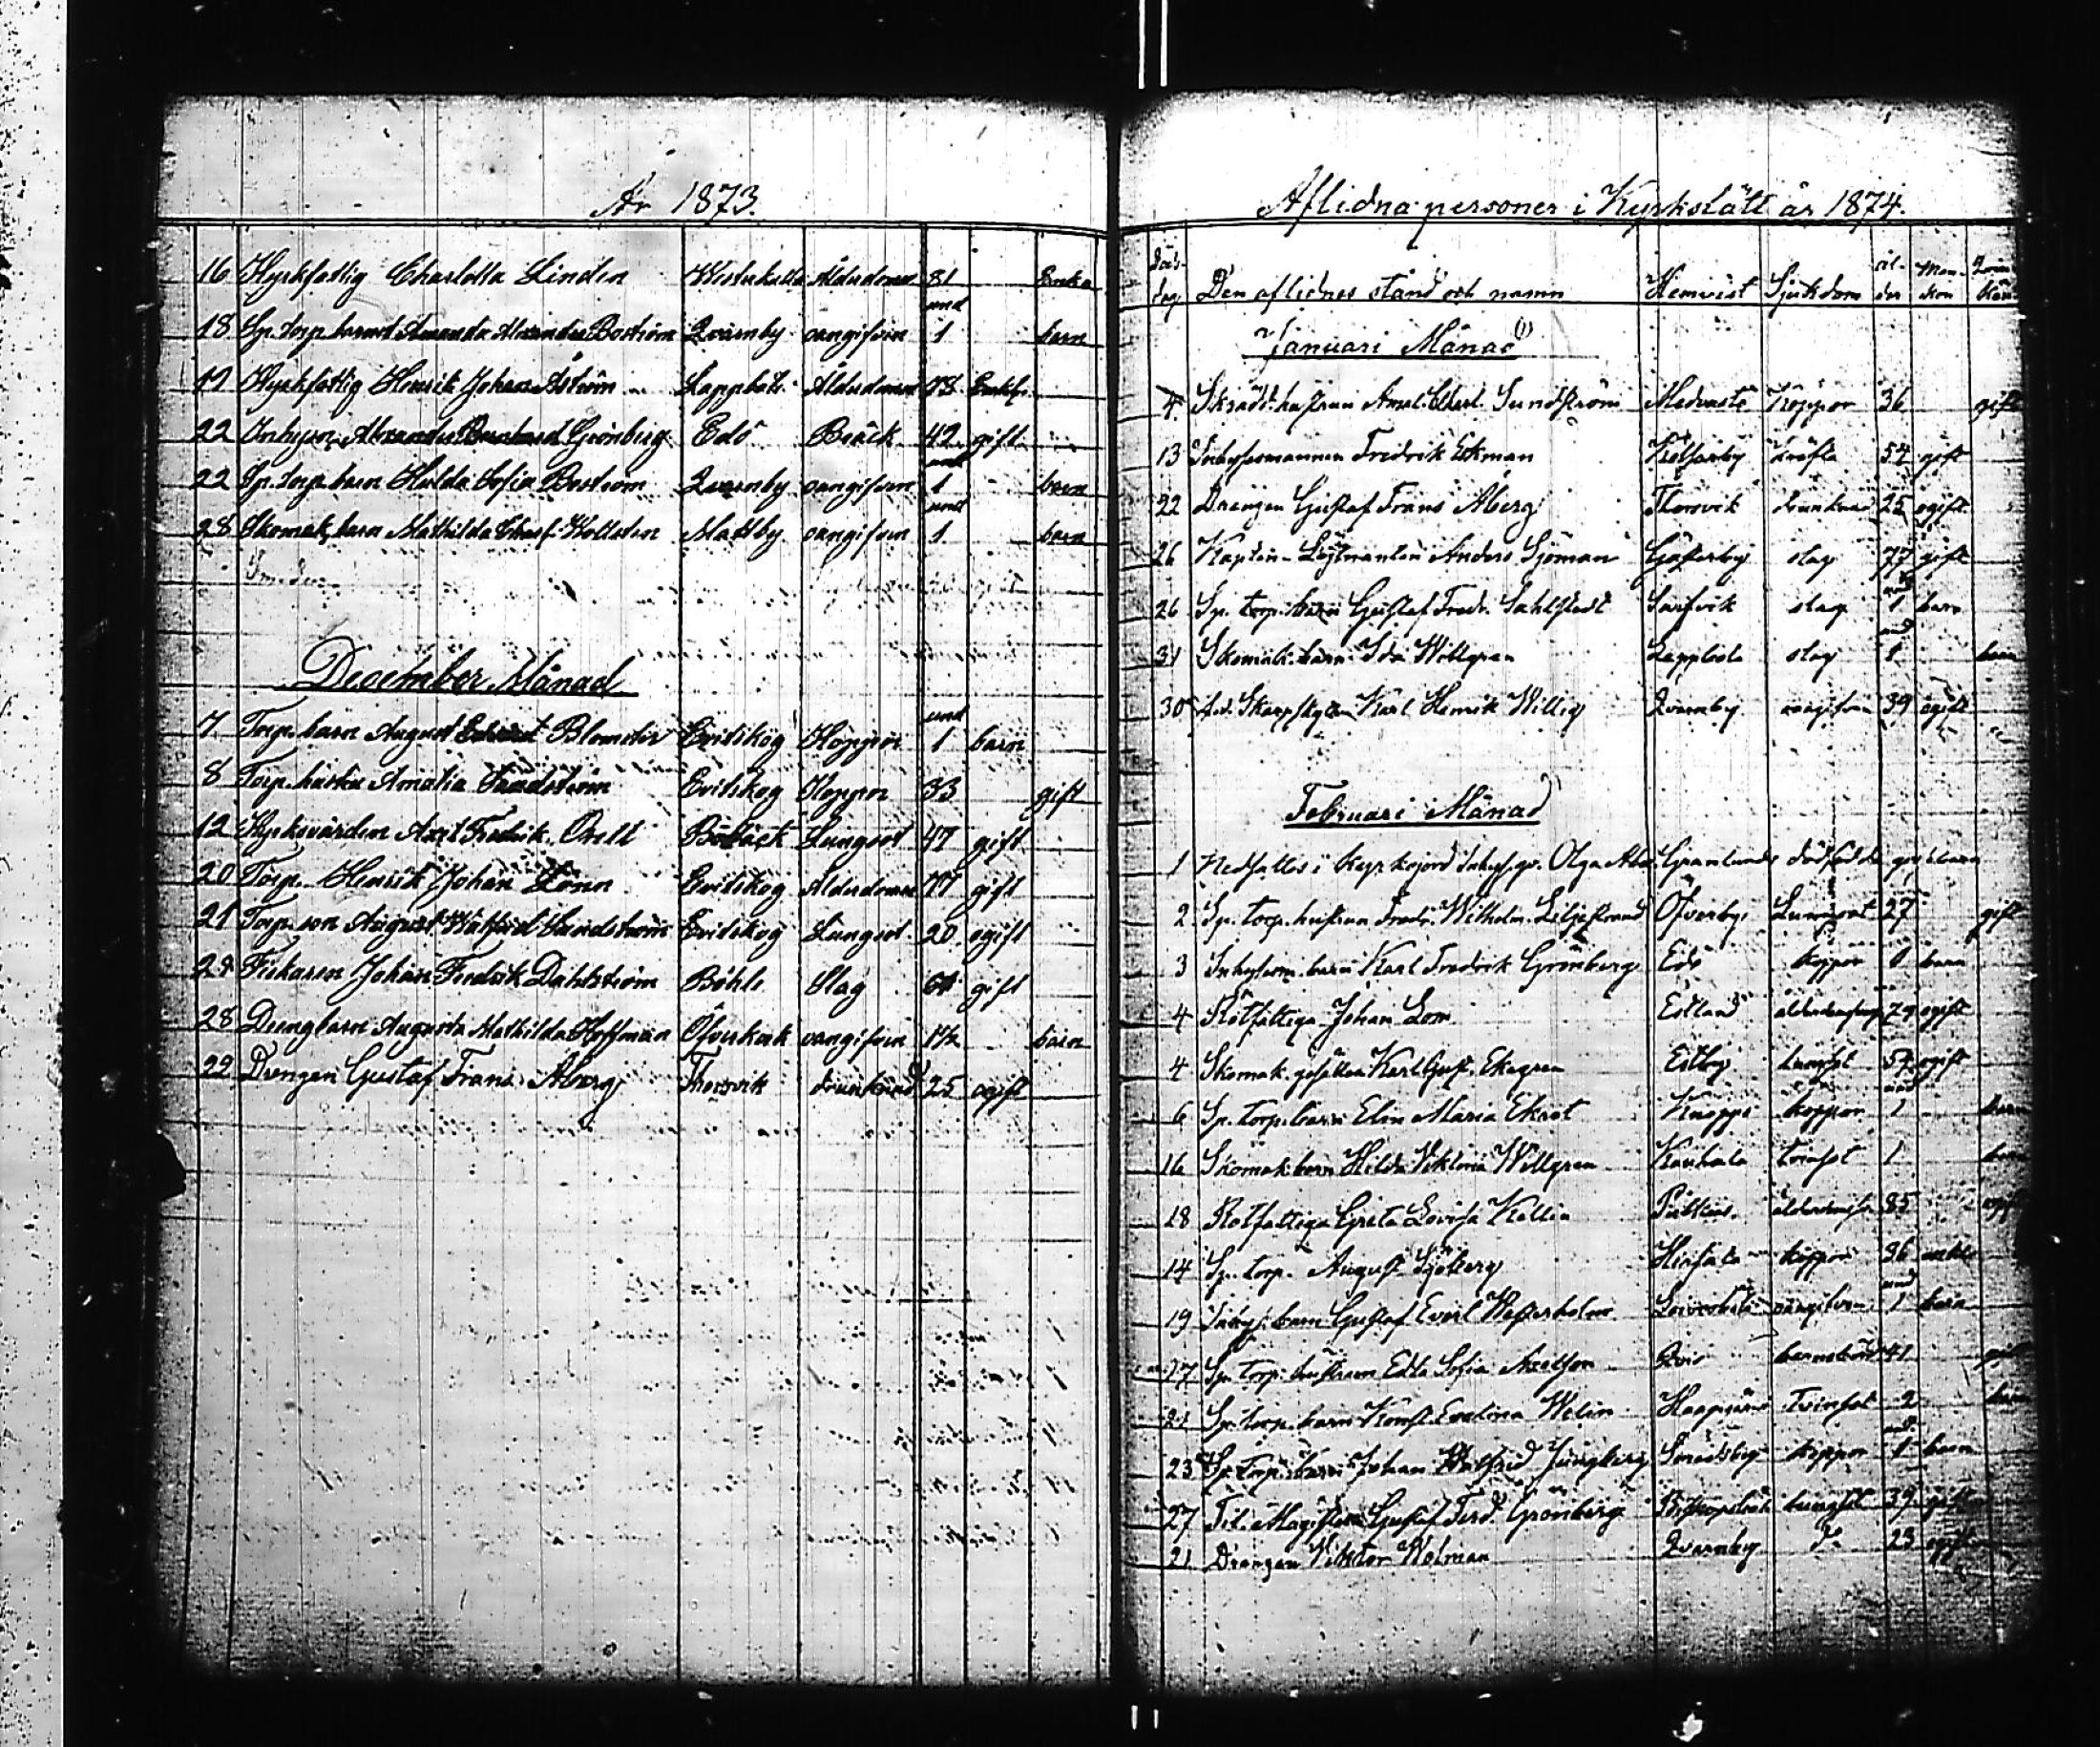 År 1873.
16 Kyrkfattig Charlotta Linden Westerkulla Ålderdomen 81 Enka
und
18 Sp. torp. barnet Amanda Alexandra Boström Qvarnby oangifven 1 barn
19 Kyrkfattig Henrik Johan Åström Lappböle Ålderdomen 78 Enkl.
22 Inhyses Alexander Grönberg Edö Bråck 42 gift
und
22 Sp. torp. barn Hulda Sofia Boström Qvarnby oangifven 1 barn
und
28 Skomak. barn Mathilda Hollsten Mattby oangifven 1 barn
December Månad
und
7 Torp. barn August Blomster Evitskog Koppor 1 barn
8 Torp. hustru Amalia Sundström Evitskog Koppor 33 gift
12 Kyrkovärden Axel Fredrik Orell Bobäck Lungsot 47 gift
20 Torp. Henrik Johan Lönn Evitskog Ålderdomen gift
21 Torp. son August Walfrid Sundström Evitskog Lungsot 20 ogift
Fiskaren Johan Fredrik Dahlström Böhle Slag gift
28 Drengbarn Augusta Mathilda Hoffman Öfverkurk oangifven 1½ barn
29 Drengen Gustaf Frans Åberg Thorsvik drunknad 25 ogift
Aflidna personer i Kyrkslätt år 1874.
Döds-dag Den aflidnes stånd och namn Hemvist Sjukdom Ål-der Man-kön Qvin-kön
Januari Månad
4 Skrädd. hustrun Amal. Sundström Medvastö Koppor 36 gift
13 Inhysesmannen Fredrik Ekman kräfta 54 gift
22 Drengen Gustaf Frans Åberg Thorsvik drunknad 25 ogift
26 Kapten-Löjtnanten Anders Sjöman Gesterby slag 77 gift
und
26 Sp. torp. barn Gustaf Fredr. Sahlstedt Sarfvik slag 1 barn
und
31 Skomak. barn Ida Wellgren Lappböle slag 1 barn
30 f.d. Skarpskytten Karl Henrik Willig Qvarnby oangifven 39 ogift
Februari Månad
1 Nedsattes i kyrkojord Inhys. qv. Olga Granlunds dödfödda gossbarn
2 Sp. torp. hustrun Fredr. Wilhelm. Liljestrand Öfverby Lungsot 27 gift
3 Inhysesm. barn Karl Fredrik Grönberg Edö koppor barn
4 Rotfattiga Johan Lom Estland 79 ogift
4 Skomak. gesällen Karl Gust. Ekegren Estby lungsot 54 ogift
und
6 Sp. torp. barn Elin Maria Ekrot Knopps koppor 1 barn
16 Skomak. barn Hilda Viktoria Wellgren Kauhala tvinsot 1 barn
18 Rotfattiga Greta Lovisa Kallin 85
14 Sp. torp. August Sjöberg Hirsala koppor 36
und
19 Inhys. barn Gustaf Evert Westerholm oangifven 1 barn
17 Sp. torp. hustrun Edla Sofia Axelson barnsbörd 41 gift
21 Sp. torp. barn Konst. Evelina Welin tvinsot 2 barn
und
23 Sp. torp. barn Johan Walfrid Ljungberg Smedsby koppor 1 barn
27 Tit. Magister Gustaf Ferd. Grönberg lungsot 39 gift
21 Drengen Viktor Holman Qvarnby Do 23 ogift